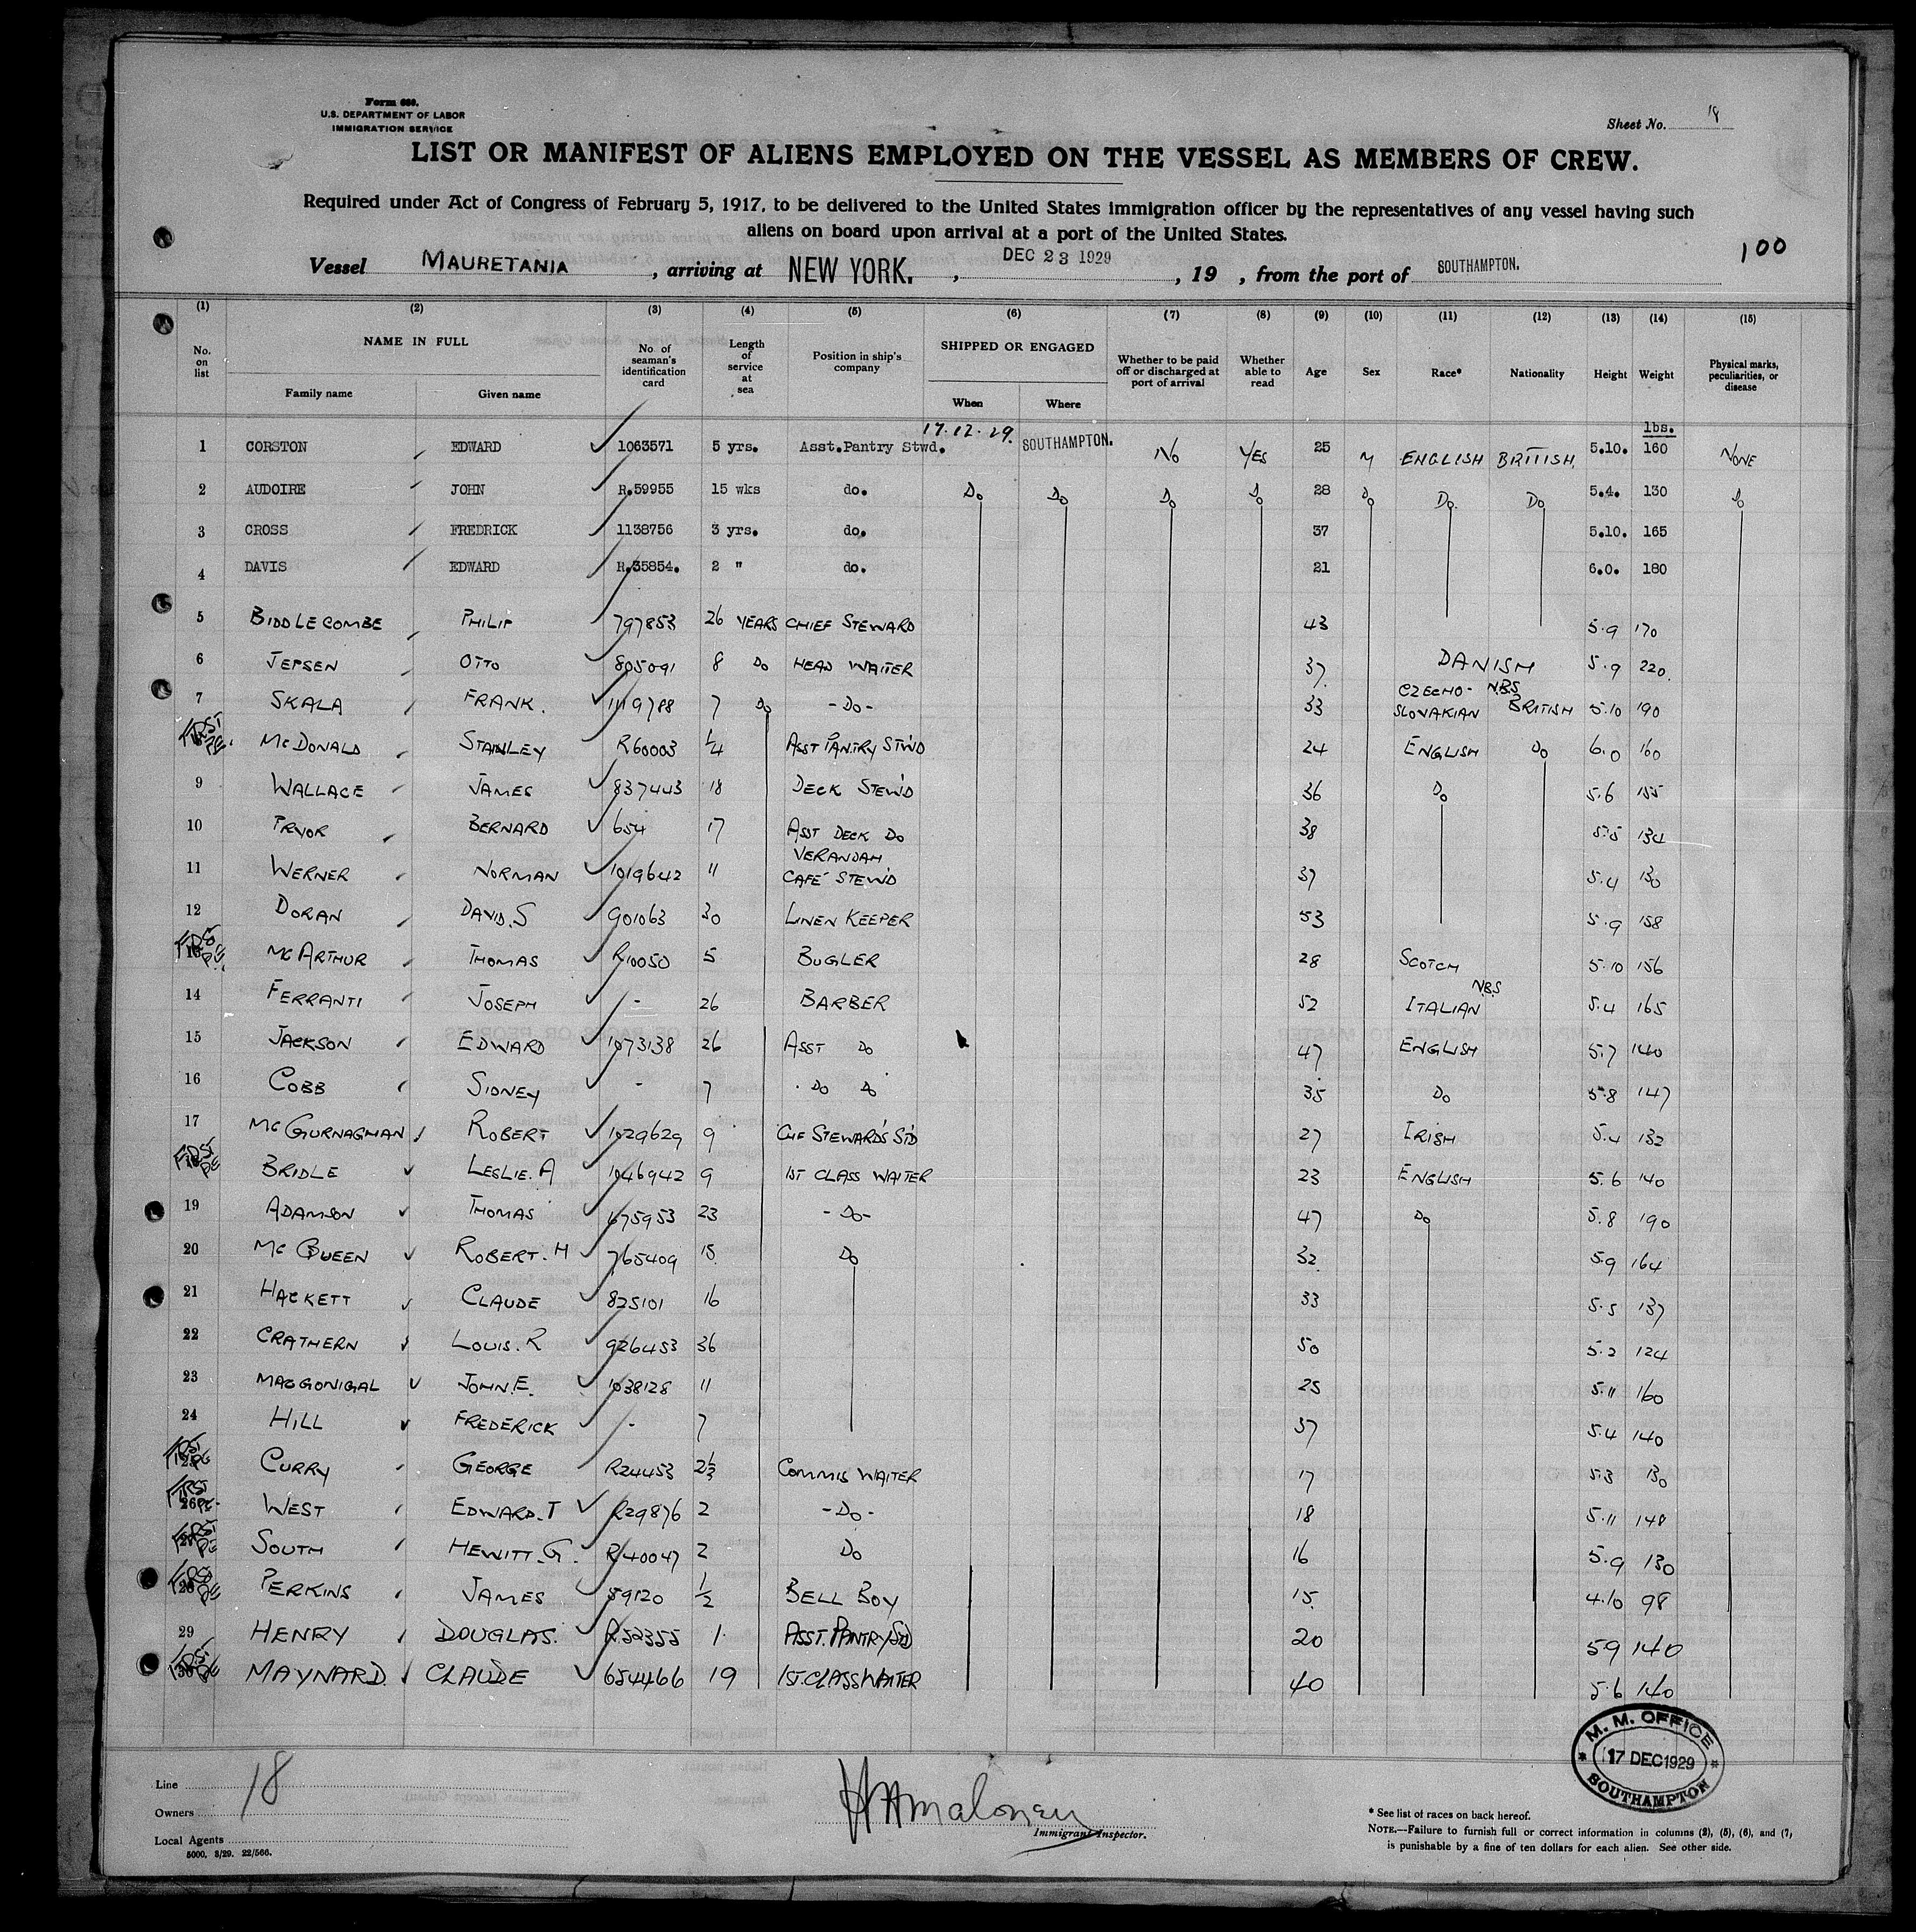 Form 680.
U.S. DEPARTMENT OF LABOR
IMMIGRATION SERVICE
Sheet No. 18
LIST OR MANIFEST OF ALIENS EMPLOYED ON THE VESSEL AS MEMBERS OF CREW.
Required under Act of Congress of February 5, 1917, to be delivered to the United States immigration officer by the representatives of any vessel having such
aliens on board upon arrival at a port of the United States.
100
Vessel MAURETANIA, arriving at NEW YORK., DEC 23 1929, 19 , from the port of SOUTHAMPTON.
(1) (2) (3) (4) (5) (6) (7) (8) (9) (10) (11) (12) (13) (14) (15)
No. on list NAME IN FULL Family name Given name No. of seaman's identification card Length of service at sea Position in ship's company SHIPPED OR ENGAGED When Where Whether to be paid off or discharged at port of arrival Whether able to read Age Sex Race* Nationality Height Weight Physical marks, peculiarities, or disease
lbs.
1 CORSTON EDWARD 1063571 5 yrs. Asst.Pantry Stwd. 17.12.29. SOUTHAMPTON. NO YES 25 M ENGLISH BRITISH. 5.10. 160 NONE
2 AUDOIRE JOHN R.59955 15 wks do. Do Do Do Do 28 Do Do. Do 5.4. 130 Do
3 CROSS FREDRICK 1138756 3 yrs. do. 37 5.10. 165
4 DAVIS EDWARD R.35854. 2 " do. 21 6.0. 180
5 BIDDLECOMBE PHILIP 797853 26 YEARS CHIEF STEWARD 43 5.9 170
6 JEPSEN OTTO 805091 8 DO HEAD WAITER 37 DANISH 5.9 220.
7 SKALA FRANK. 1119788 7 Do -Do- 33 CZECHO-SLOVAKIAN N.B.S BRITISH 5.10 190
McDONALD STANLEY R60003 1/4 ASST PANTRY STWD 24 ENGLISH Do 6.0 160
9 WALLACE JAMES 837443 18 DECK STEWD 36 Do 5.6 155
10 PRYOR BERNARD 654 17 ASST DECK DO 38 5.5 134
11 WERNER NORMAN 1019642 11 VERANDAH CAFÉ STEWD 37 5.4 130
12 DORAN DAVID.S 901063 30 LINEN KEEPER 53 5.9 158
McARTHUR THOMAS R10050 5 BUGLER 28 SCOTCH 5.10 156
14 FERRANTI JOSEPH - 26 BARBER 52 ITALIAN N.B.S 5.4 165
15 JACKSON EDWARD 1073138 26 ASST DO 47 ENGLISH 5.7 140
16 COBB SIDNEY - 7 DO DO 35 Do 5.8 147
17 McGURNAGHAN ROBERT 1029629 9 CHF STEWARD'S STD 27 IRISH 5.4 132
BRIDLE LESLIE.A 1046942 9 1ST CLASS WAITER 23 ENGLISH 5.6 140
19 ADAMSON THOMAS 675953 23 -Do- 47 Do 5.8 190
20 McQUEEN ROBERT.H 765409 15 Do 32 5.9 164
21 HACKETT CLAUDE 825101 16 33 5.5 137
22 CRATHERN LOUIS.R 926453 36 50 5.2 124
23 MACGONIGAL JOHN.E. 1038128 11 25 5.11 160
24 HILL FREDERICK - 7 37 5.4 140
CURRY GEORGE R24453 2 1/3 COMMIS WAITER 17 5.3 130
26 WEST EDWARD.T R29876 2 -Do- 18 5.11 148
SOUTH HEWITT.G. R40047 2 Do 16 5.9 130
28 PERKINS JAMES 59120 1/2 BELL BOY 15. 4.10 98
29 HENRY DOUGLAS. R.52355 1. ASST.PANTRY Std 20 59 140
MAYNARD. CLAUDE 654466 19 1ST.CLASS WAITER 40 5.6 140
M. M. OFFICE
17 DEC 1929
SOUTHAMPTON
Line 18
Owners
Local Agents
5000. 8/29. 22/566.
Immigrant Inspector.
* See list of races on back hereof.
NOTE.—Failure to furnish full or correct information in columns (2), (5), (6), and (7),
is punishable by a fine of ten dollars for each alien. See other side.